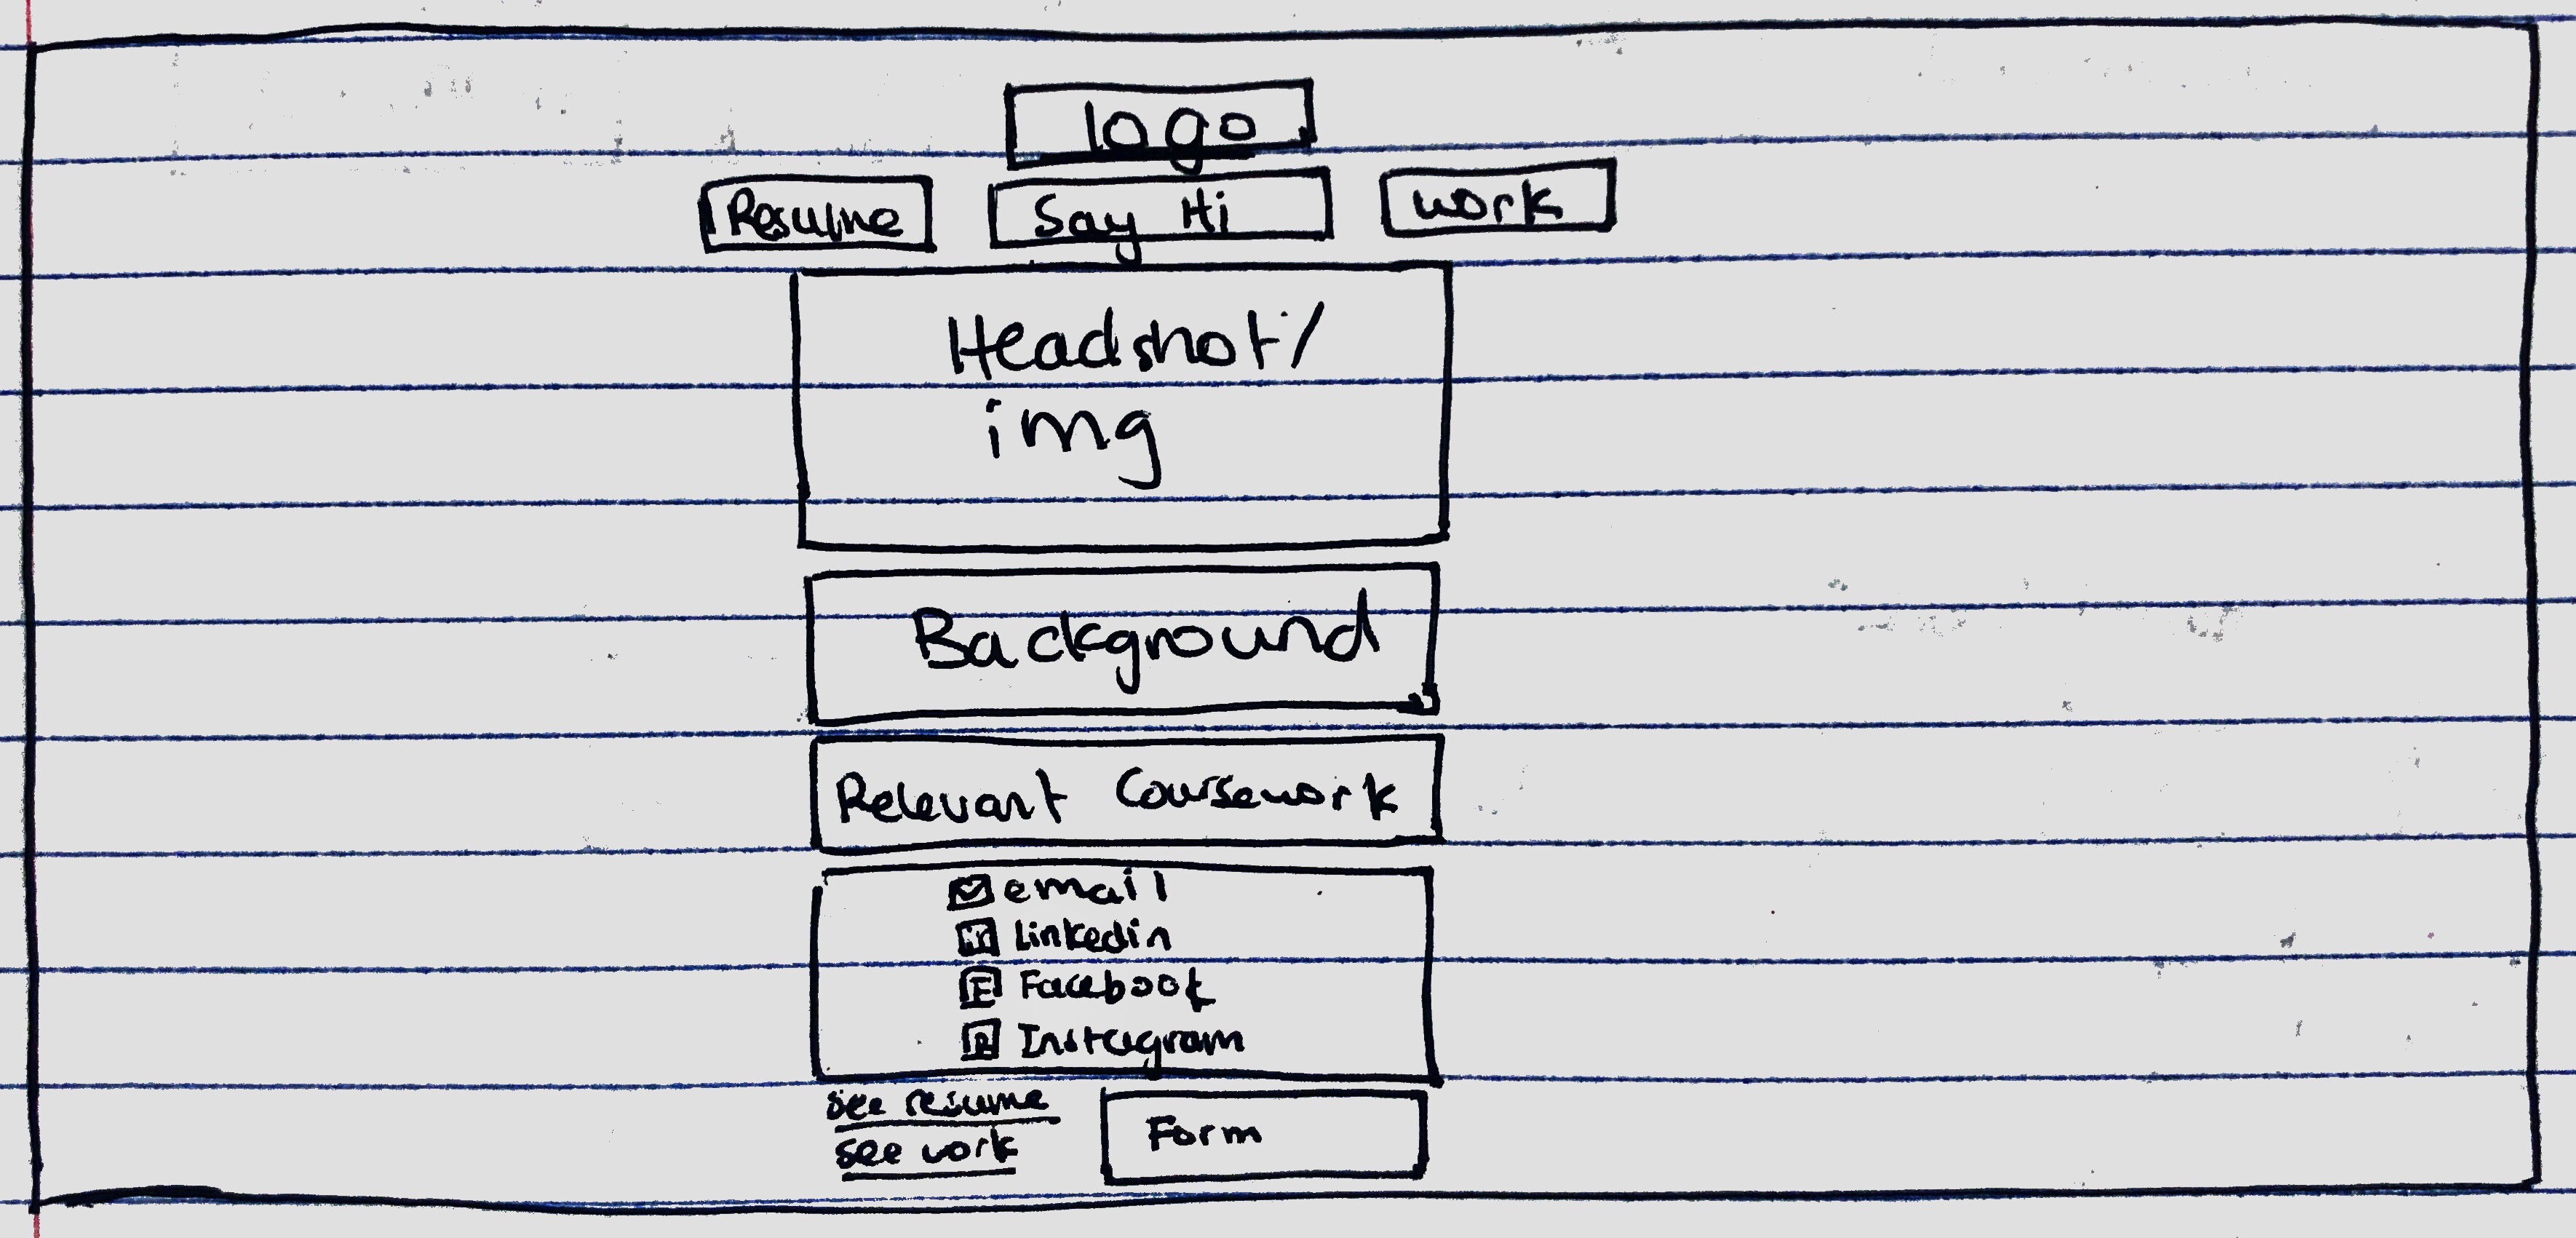 logo
Resume Say Hi work
Headshot/
img
Background
Relevant Coursework
email
in Linkedin
F Facebook
Instagram
see resume
see work
Form